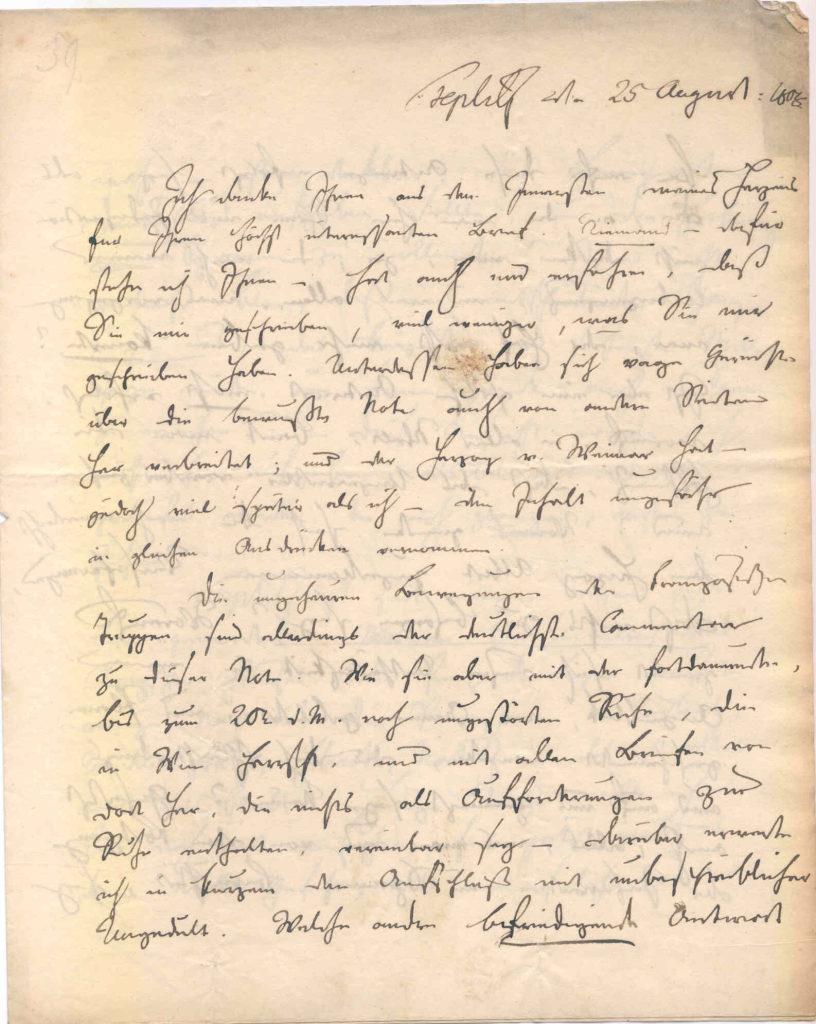 59
Teplitz den 25 August 1808.
Ich danke Ihnen aus dem Innersten meines Herzens
für Ihren höchst interessanten Brief. Niemand – dafür
stehe ich Ihnen – hat auch nur erfahren, daß
Sie mir geschrieben, viel weniger, was Sie mir
geschrieben haben. Unterdessen haben sich vage Gerüchte
über die bewußte Note auch von andern Seiten
her verbreitet; und der Herzog v. Weimar hat –
jedoch viel später als ich – den Inhalt ungefähr
in gleichen Ausdrücken vernommen.
Die ungeheuren Bewegungen der Französischen
Truppen sind allerdings der deutlichste Commentar
zu dieser Note. Wie sie aber mit der fortdauernden,
bis zum 20t. d. M. noch ungestörten Ruhe, die
in Wien herrscht, und mit allen Briefen von
dort her, die nichts als Aufforderungen zur
Ruhe enthalten, vereinbar sey – darüber erwarte
ich in kurzem den Aufschluß mit unbeschreiblicher
Ungedult. Welche andre befriedigende Antwort